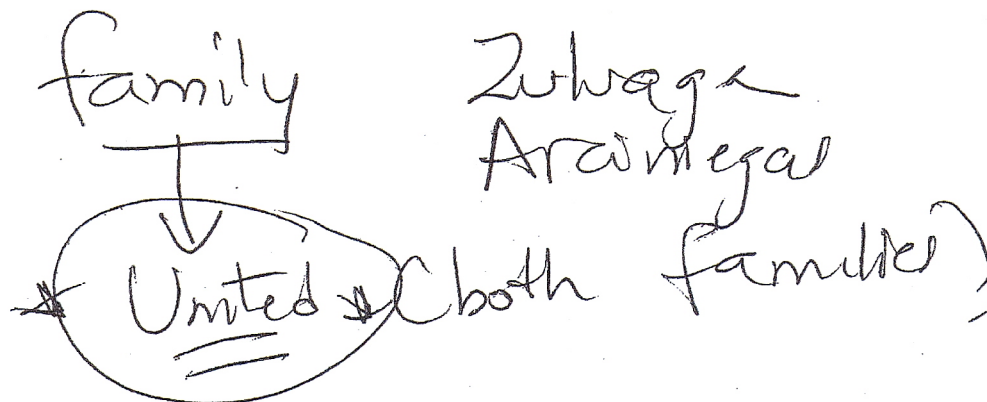 family Zuluaga
Aranegas
United (both families)